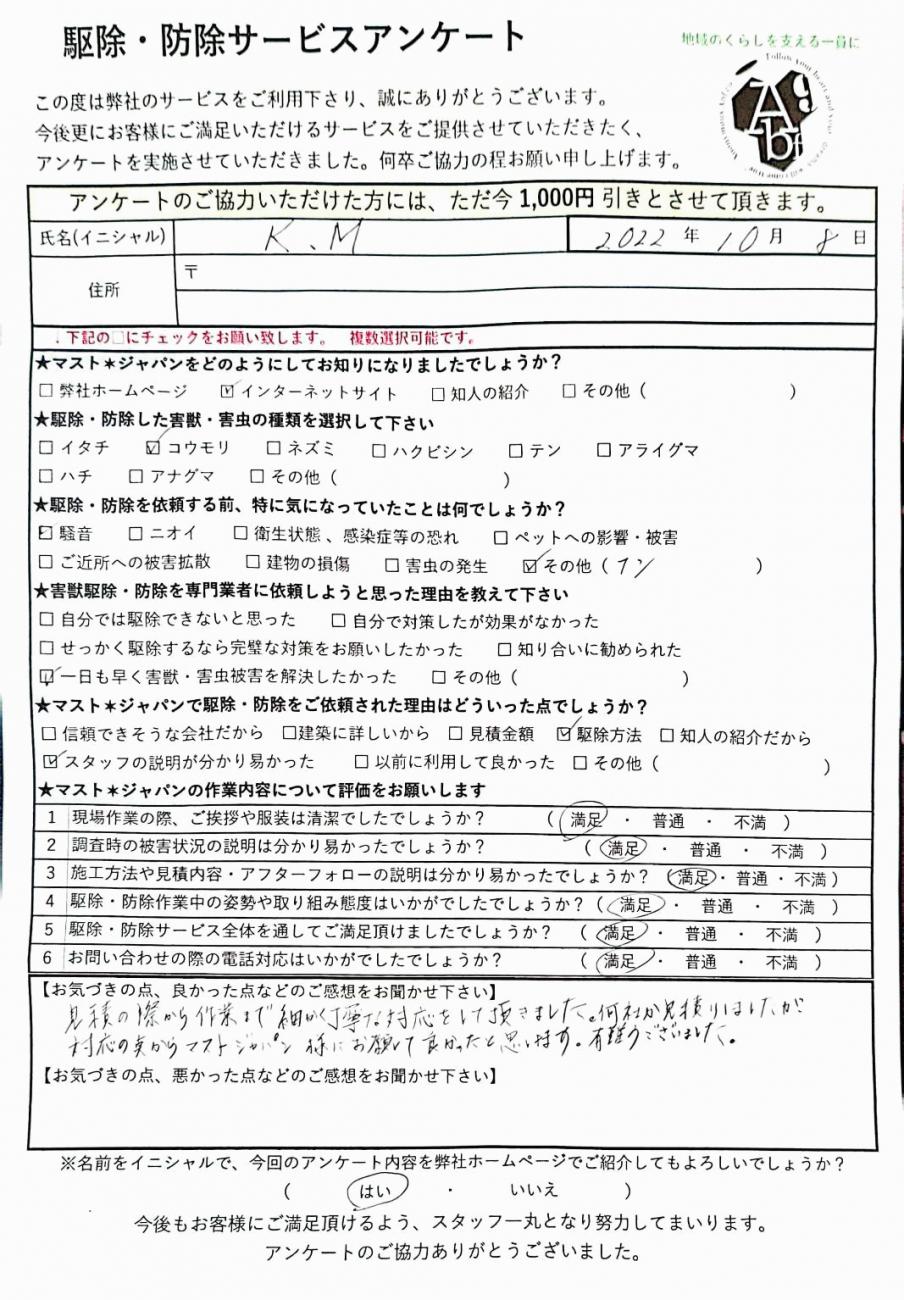 駆除・防除サービスアンケート
地域のくらしを支える一員に
この度は弊社のサービスをご利用下さり、誠にありがとうございます。
今後更にお客様にご満足いただけるサービスをご提供させていただきたく、
アンケートを実施させていただきました。何卒ご協力の程お願い申し上げます。
アンケートのご協力いただけた方には、ただ今 1,000円 引きとさせて頂きます。
氏名(イニシャル) K、M 2022 年 10 月 8 日
住所 〒
↓下記の□にチェックをお願い致します。 複数選択可能です。
★マスト＊ジャパンをどのようにしてお知りになりましたでしょうか？
□ 弊社ホームページ ☑ インターネットサイト □ 知人の紹介 □ その他（ ）
★駆除・防除した害獣・害虫の種類を選択して下さい
□ イタチ ☑ コウモリ □ ネズミ □ ハクビシン □ テン □ アライグマ
□ ハチ □ アナグマ □ その他（ ）
★駆除・防除を依頼する前、特に気になっていたことは何でしょうか？
☑ 騒音 □ ニオイ □ 衛生状態、感染症等の恐れ □ ペットへの影響・被害
□ ご近所への被害拡散 □ 建物の損傷 □ 害虫の発生 ☑ その他（フン ）
★害獣駆除・防除を専門業者に依頼しようと思った理由を教えて下さい
□ 自分では駆除できないと思った □ 自分で対策したが効果がなかった
□ せっかく駆除するなら完璧な対策をお願いしたかった □ 知り合いに勧められた
☑ 一日も早く害獣・害虫被害を解決したかった □ その他（ ）
★マスト＊ジャパンで駆除・防除をご依頼された理由はどういった点でしょうか？
□ 信頼できそうな会社だから □建築に詳しいから □ 見積金額 ☑ 駆除方法 □ 知人の紹介だから
☑ スタッフの説明が分かり易かった □ 以前に利用して良かった □ その他（ ）
★マスト＊ジャパンの作業内容について評価をお願いします
1 現場作業の際、ご挨拶や服装は清潔でしたでしょうか？ （ 満足 ・ 普通 ・ 不満 ）
2 調査時の被害状況の説明は分かり易かったでしょうか？ （ 満足 ・ 普通 ・ 不満 ）
3 施工方法や見積内容・アフターフォローの説明は分かり易かったでしょうか？ （満足・普通・不満）
4 駆除・防除作業中の姿勢や取り組み態度はいかがでしたでしょうか？（ 満足 ・ 普通 ・ 不満 ）
5 駆除・防除サービス全体を通してご満足頂けましたでしょうか？ （ 満足 ・ 普通 ・ 不満 ）
6 お問い合わせの際の電話対応はいかがでしたでしょうか？ （ 満足 ・ 普通 ・ 不満 ）
【お気づきの点、良かった点などのご感想をお聞かせ下さい】
見積の際から作業まで細かく丁寧な対応をして頂きました。何社か見積りしましたが
対応の点からマストジャパン様にお願して良かったと思います。有難うございました。
【お気づきの点、悪かった点などのご感想をお聞かせ下さい】
※名前をイニシャルで、今回のアンケート内容を弊社ホームページでご紹介してもよろしいでしょうか？
（ はい ・ いいえ ）
今後もお客様にご満足頂けるよう、スタッフ一丸となり努力してまいります。
アンケートのご協力ありがとうございました。